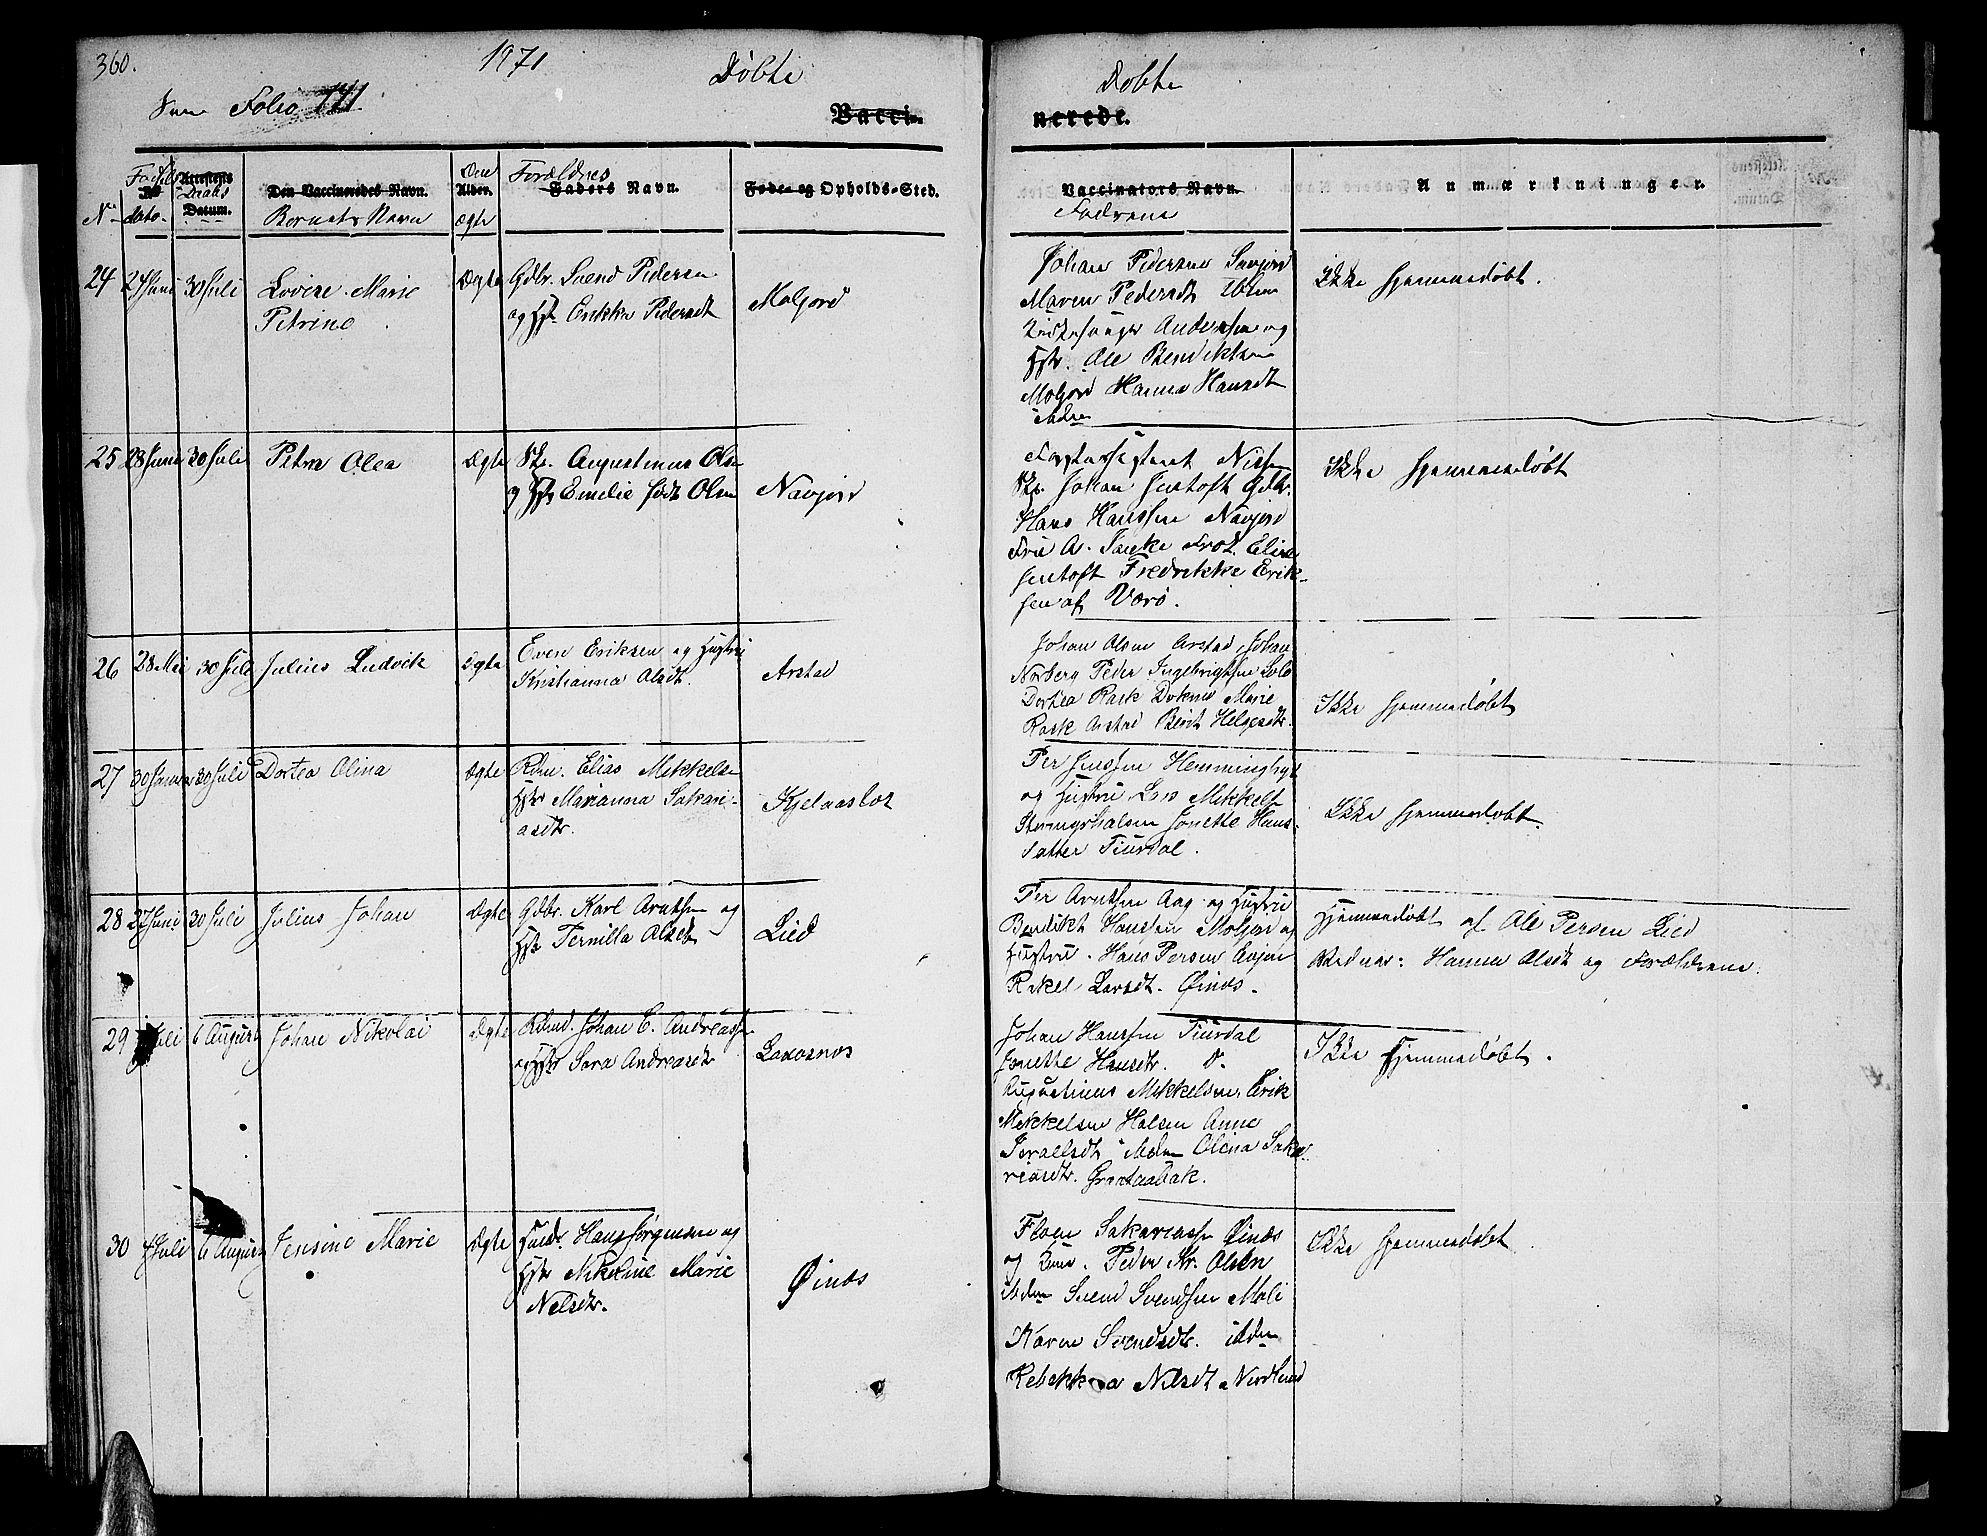 360.
1971
Døbte
Døbte
Folio 141
Vacci-
nerede.
Fødsels dato
No
Attestets Daabs Datum.
Den Vaccineredes Navn.
Barnets Navn
Alder.
Ægte
Forældres
Faders Navn.
Føde- og Opholds-Sted.
Vaccinators Navn.
Fadrene
Anmærkninger.
24 27 Juni 30 Juli Lovise Marie Ægte Gdbr. Svend Pedersen Moljord
Petrine og Hstr. Erikka Pedersdt
Johan Pedersen Navjord
Maren Pedersdt
Kirkesanger Andersen og
Hstr. Ole Bendiktsen
Moljord Hanna Hansdt
ibdm
Ikke hjemmedøbt.
25 28 Juni 30 Juli Petra Olea Ægte Augustinus Olsen
og Hstr Emelie født Olsen Navjord
Nissen
Johan Jentoft Gdbr.
Hans Hanssen Navjord
Elise
Jentoft Fredrikke Erik-
sen af Værø.
Ikke hjemmedøbt
26 28 Mai 30 Juli Julius Ludvik Ægte Even Eriksen og Hustru
Kristianna Olsdt. Arstad
Johan Olsen Arstad Johan
Norberg Peder Ingebrigtsen
Dortea Rask Doknes Marie
Rask Arstad Berit Helgesdtr.
Ikke hjemmedøbt
27 30 Januar 30 Juli Dortea Olina Ægte Rdm. Elias Mikkelsen
Hstr Marianna Sakari-
asdtr. Kjelaasbak
Per Jenssen Hemminghyt
og Hustru Lars Mikkels
Jonette Hans-
datter Tiurdal.
Ikke hjemmedøbt.
28 27 Juni 30 Juli Julius Johan Ægte Gdbr. Karl Arntsen og
Hstr Pernilla Olsdt Lied
Per Arntsen Aag og Hustru
Bendikt Hanssen Moljord og
Hustru. Hans Persen Evjen
Rakel Larsdt. Øinæs.
Hjemmedøbt af Ole Persen Lied
Vidner: Hanna Olsdt og Forældrene.
29 Juli 6 August Johan Nikolai Ægte Rdmd. Johan E. Andreassen
og Hstr Sara Andreasdtr Laxosnes
Johan Hanssen Tiurdal
Jonette Hansdtr. do.
Augustinus Mikkelsen, Erik
Mikkelsen Halsen Anne
Israelsdt ibdm Olena Saka-
riasdtr. Grantaabak.
Ikke Hjemmedøbt.
30 Juli 6 August Jensine Marie Ægte Hans Jørgensen og
Hstr Nikoline Marie
Nelsdtr. Øinæs
Sakariassen Øinæs
og Kone. Peder Kr. Olsen
ibdm Svend Svendsen Moli
Karen Svendsdtr. ibdm
Rebekka Nelsdt Nordland
Ikke hjemmedøbt